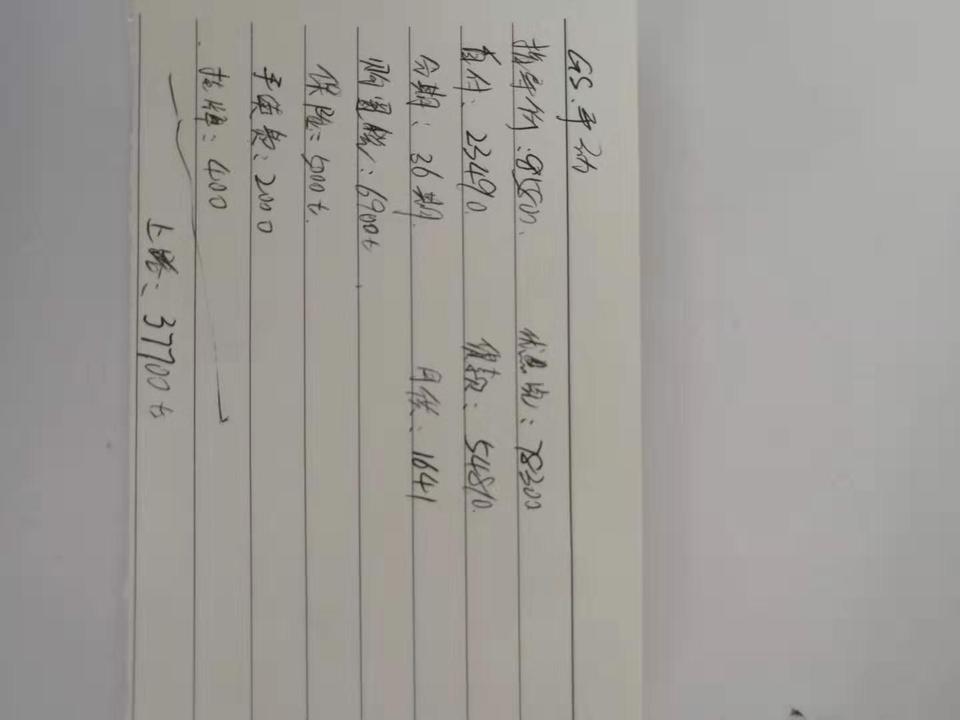 GS.手动
指导价:95800.  优惠完:78300
首付:23490.  贷款:54810.
分期:36期.  月供:1641
购置税:6900左.
保险:5000左.
手续费:2000
挂牌:400
上路:37700左